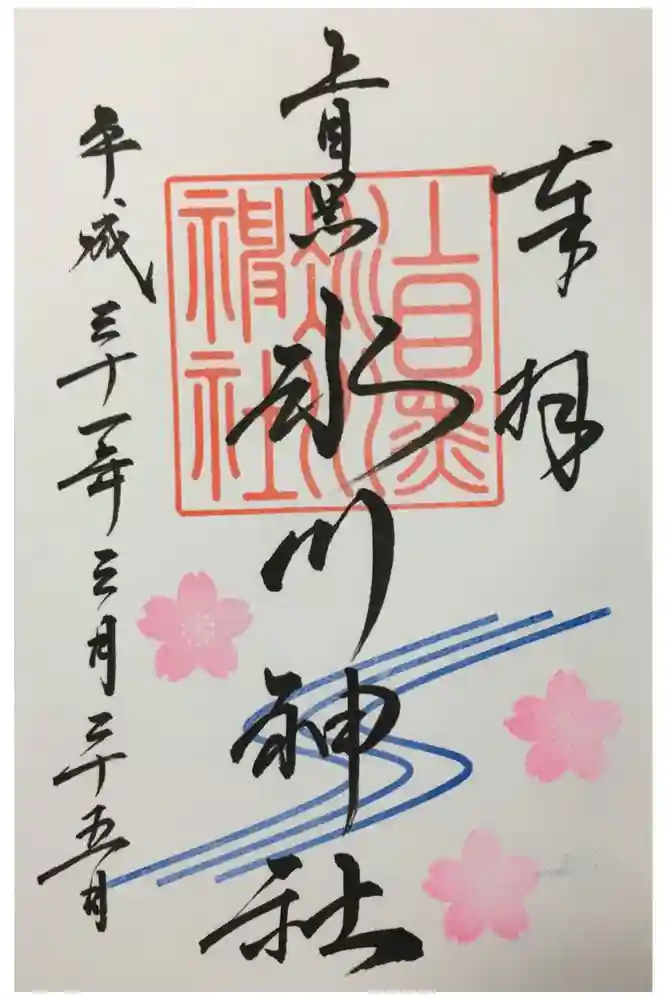 奉拝
上目黒氷川神社
上目黒
氷川
神社
平成三十一年三月二十五日